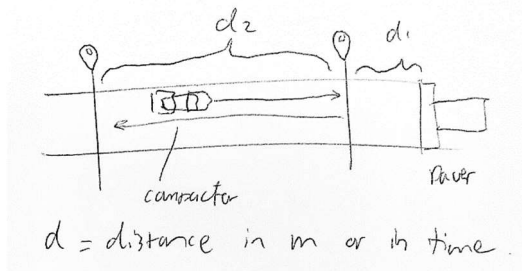 d2
d1
compactor
Paver
d = distance in m or in time.